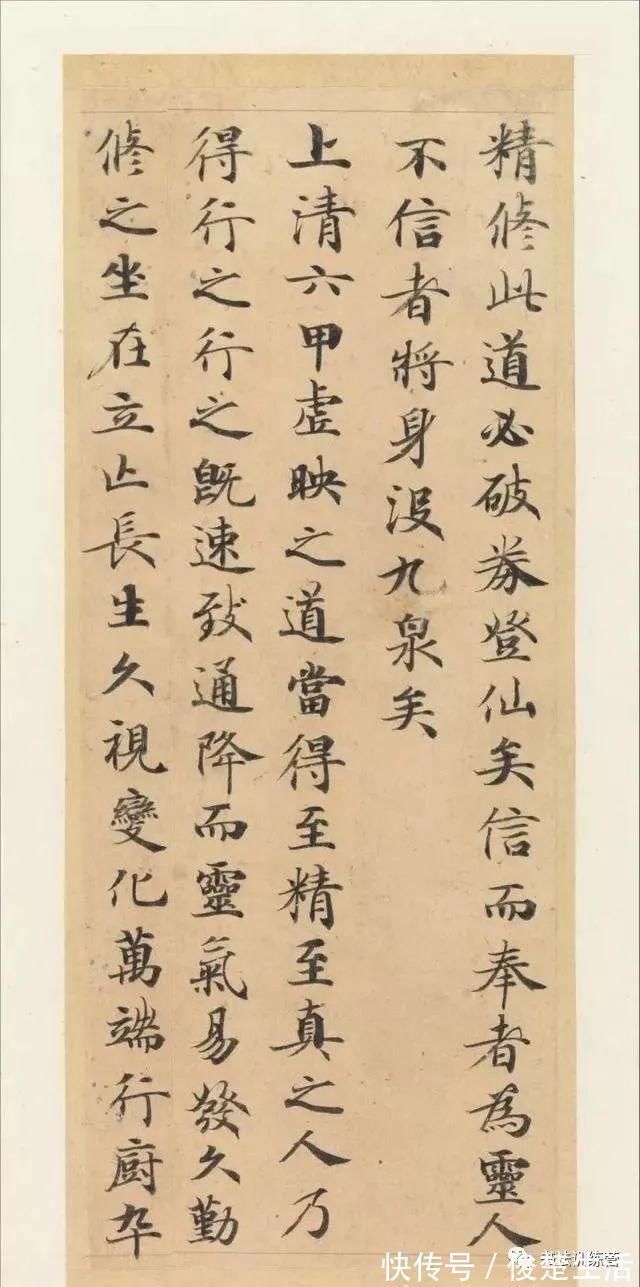 精修此道必破券登仙矣信而奉者為靈人
不信者將身沒九泉矣
上清六甲虛映之道當得至精至真之人乃
得行之行之既速致通降而靈氣易發久勤
修之坐在立亡長生久視變化萬端行廚卒
快传号 / 俊楚生活